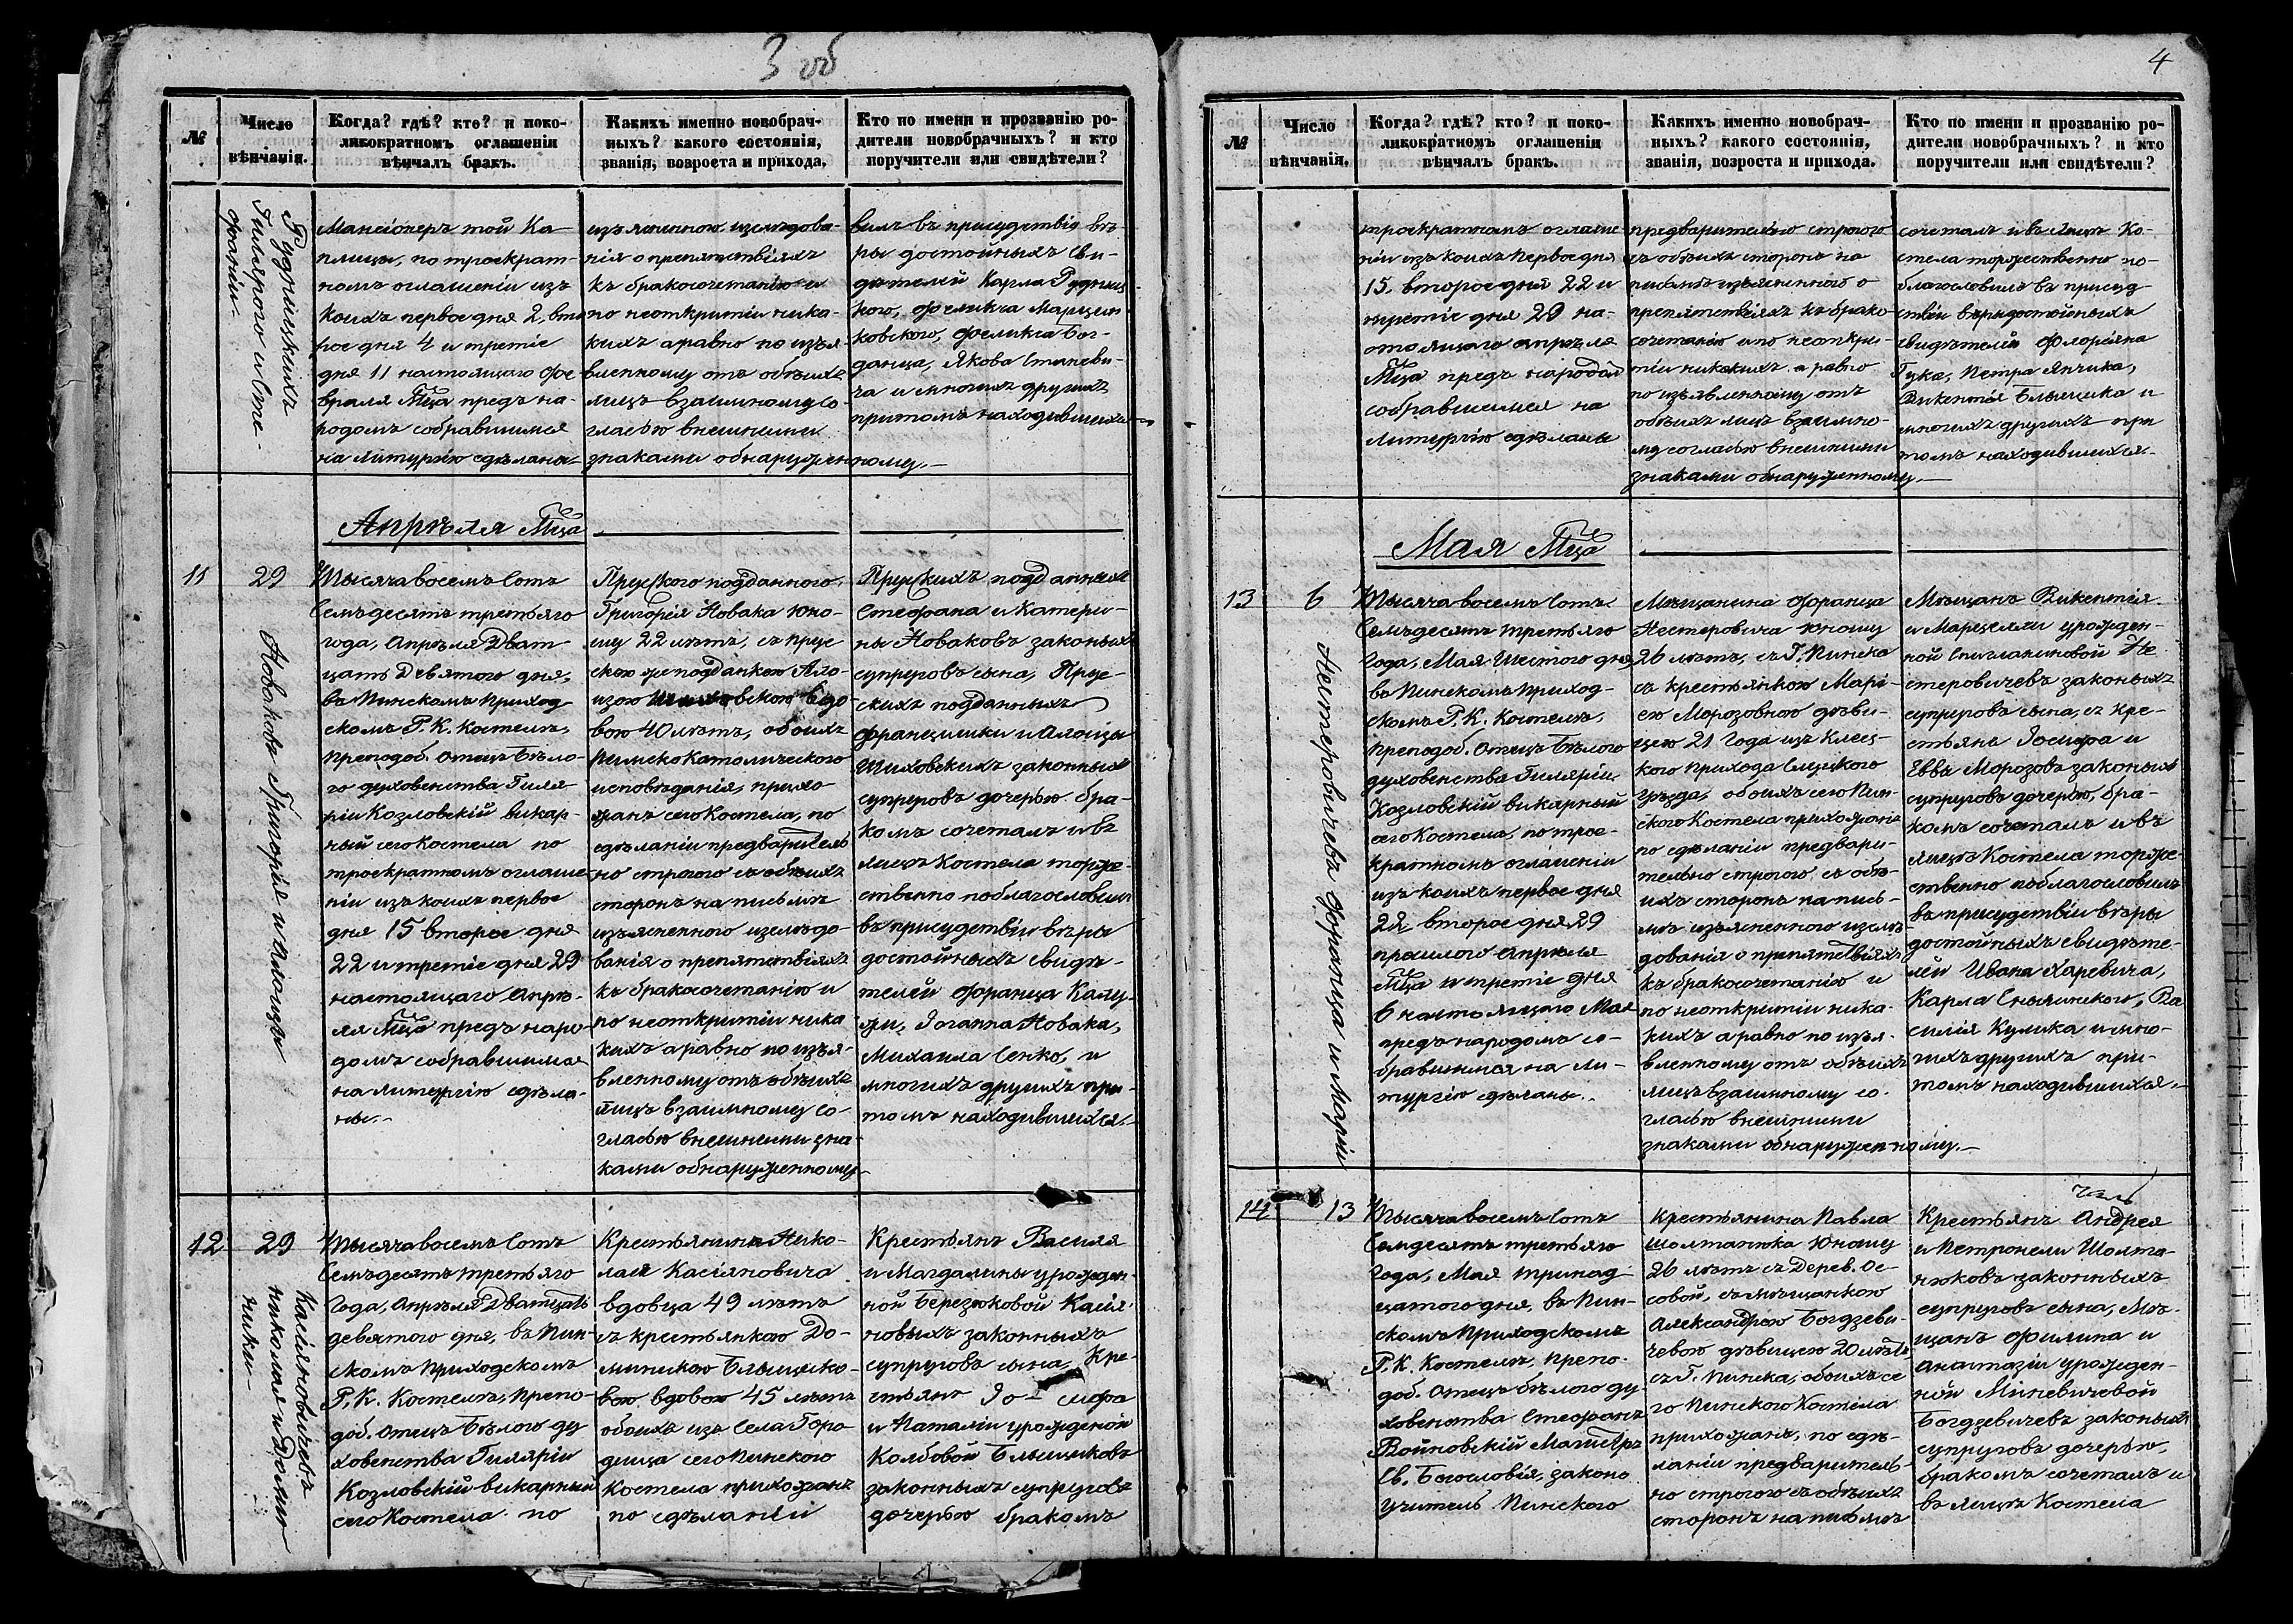 3 об
№
Число
вѣнчанія.
Когда? гдѣ? кто? и поко-
ликократномъ оглашеніи
вѣнчалъ бракъ.
Какихъ именно новобрач-
ныхъ? какого состоянія,
званія, возроста и прихода.
Кто по имени и прозванію ро-
дители новобрачныхъ? и кто
поручители или свидѣтели?
Рудницкихъ
Гилярого и Сте-
фаніи
Мансіонеръ той Ка-
плицы, по троекрат-
номъ оглашеніи изъ
коихъ первое дня 2, вто
рое дня 4 и третіе
дня 11 настоящаго Фе
враля Мца предъ на-
родомъ собравшимся
на литургію сдѣланы
изъясненного изслѣдова-
нія о препятствіяхъ
къ бракосочетанію и
по неоткрытіи ника-
кихъ а равно по изъя-
вленному отъ обѣихъ
лицъ взаимному со-
гласію внешними
знаками обнаруженному.
вилъ въ присудствіи вѣ-
ры достойныхъ Сви-
дѣтелей Карла Рудниц
кого, Феликса Марцин
ковского, Феликса Бог-
данца, Якова Станеви-
ча и многихъ другихъ
притомъ находившихся
Апрѣля Мца
11
29
Новаковъ Григорія и Алоизы
Тысяча восемъ Сотъ
Семъдесятъ третьяго
года, Апрѣля Двад-
цать Девятого дня,
въ Пинскомъ Приход
скомъ Р. К. Костелѣ,
Преподоб. Отецъ Бѣло-
го духовенства Гиля-
рій Козловскій викар-
ный сего Костела по
троекратномъ оглаше-
ніи изъ коихъ первое
дня 15 второе дня
22 и третіе дня 29
настоящаго Апрѣ-
ля Мца предъ наро-
домъ собравшимся
на литургію сдѣла-
ны.-
Прусского подданного,
Григорія Новака юно-
шу 22 лѣтъ, съ прус
скою же подданкою Ало-
изою Шиховскою вдо
вою 40 лѣтъ, обоихъ
Римско Католического
исповѣданія, прихо
жанъ сего Костела, по
сдѣланіи предваритель
но строгого съ обѣихъ
сторонъ на письмѣ
изъясненного изслѣдо-
ванія о препятствіяхъ
къ бракосочетанію и
по неоткрытіи ника
кихъ а равно по изъя-
вленному отъ обѣихъ
лицъ взаимному со-
гласію внешними зна-
ками обнаруженному-
Прусскихъ подданныхъ
Стефана и Катери-
ны Новаковъ законыхъ
супруговъ сына, Прус-
скихъ подданныхъ
Францишки и Алоизы
Шиховскихъ законныхъ
супруговъ дочерью бра-
комъ сочеталъ и въ
лицѣ Костела торже-
ственно поблагословилъ
въ присудствіи вѣры
достойныхъ Свидѣ-
телей Франца Калу-
жи, Іоганна Новака,
Михаила Сенко, и
многихъ другихъ при-
томъ находившихся.
12
29
Касіяновичевъ
Николая и Доми-
ники-
Тысяча восемъ Сотъ
Семъдесятъ третьяго
Года, Апрѣля Двадцать
девятого дня, въ Пин-
скомъ Приходскомъ
Р. К. Костелѣ, Препо-
доб. Отецъ Бѣлого ду
ховенства Гилярій
Козловскій викарный
сего Костела по
Крестьянина Нико-
лая Касіяновича
вдовца 49 лѣтъ
съ крестьянкою До-
миникою Блыщико-
вою вдовою 45 лѣтъ
обоихъ изъ Села Горо
дища сего Пинского
Костела прихожанъ
по сдѣланіи
Крестьянъ Василя
и Магдалины урожден-
ной Березюковой Касія-
новыхъ законныхъ
супруговъ сына, Кре-
стьянъ Іо- сифа
и Наталіи урожденой
Колбовой Блыщиковъ
законныхъ супруговъ
дочерью бракомъ
4
№
Число
вѣнчанія.
Когда? гдѣ? кто? и поко-
ликократномъ оглашеніи
вѣнчалъ бракъ.
Какихъ именно новобрач-
ныхъ? какого состоянія,
званія, возроста и прихода.
Кто по имени и прозванію ро-
дители новобрачныхъ? и кто
поручители или свидѣтели?
троекратномъ оглаше
ніи изъ коихъ первое дня
15, второе дня 22 и
третіе дня 29 на-
стоящаго апрѣля
Мца предъ народомъ
собравшимся на
Литургію сдѣланы
предварительно строгого
съ обѣихъ сторонъ на
письмѣ изъясненного о
препятствіяхъ къ брако-
сочетанію и по неоткры-
тіи никакихъ а равно
по изъявленному отъ
обѣихъ лицъ взаимно-
му согласію внешними
знаками обнаруженному.-
сочеталъ и въ лицѣ Ко-
стела торжественно по-
благословилъ въ присуд
ствіи вѣрыдостойныхъ
свидѣтелей Флоріяна
Гука, Петра Янчика,
Викентія Блыщика и
многихъ другихъ при
томъ находившихся.-
Мая Мца
13
6
Нестеровичевъ Франца и Маріи
Тысяча восемъ Сотъ
Семъдесятъ третьяго
Года, Мая Шестого дня,
въ Пинскомъ Приход-
скомъ Р. К. Костелѣ,
Преподоб. Отецъ Бѣлого
духовенства Гилярій
Козловскій викарный
сего Костела, по трое-
кратномъ оглашеніи
изъ коихъ первое дня
22 второе дня 29
прошлого Апрѣля
Мца и третіе дня
6 настоящаго Мая
предъ народомъ со-
бравшимся на Ли-
тургію сдѣланы.-
Мѣщанина Франца
Нестеровича юношу
26 лѣтъ, съ Г. Пинска
съ крестьянкою Марі-
ею Морозовною дѣви-
цею 21 Года изъ Клец-
кого прихода Слуцкого
уѣзда, обоихъ сего Пин-
ского Костела прихожанъ
по сдѣланіи предвари-
тельно строгого съ обѣ-
ихъ сторонъ на пись-
мѣ изъясненного изслѣ-
дованія о препятствіяхъ
къ бракосочетанію и
по неоткрытіи ника-
кихъ а равно по изъя-
вленному отъ обѣихъ
лицъ взаимному со-
гласію внешними
знаками обнаруженному.-
Мѣщанъ Викентія
и Марцелли урожден-
ной Не-
стеровичевъ законыхъ
супруговъ сына, съ кре-
стьянъ Іосифа и
Еввы Морозовъ законыхъ
супруговъ дочерью, бра-
комъ сочеталъ и въ
лицѣ Костела торже-
ственно поблагословилъ
въ присудствіи вѣры
достойныхъ свидѣте-
лей Ивана Харевича,
Карла Сныпинского, Ва
силія Кулика и мно-
гихъ другихъ при-
томъ находившихся.-
14
13
Тысяча восемъ Сотъ
Семдесятъ третьяго
Года, Мая тринад-
цатого дня, въ Пин-
скомъ Приходскомъ
Р. К. Костелѣ, Препо-
доб. Отецъ бѣлого ду-
ховенства Стефанъ
Войновскій Магистръ
Св. Богословія, законо
учитель Пинского
Крестьянина Павла
Шолтанюка Юношу
26 лѣтъ съ Дерев. Ос
совой, съ мѣщанкою
Александрою Богдзеви-
чевою дѣвицею 20 лѣтъ
съ Г. Пинска, обоихъ се
го Пинского Костела
прихожанъ, по сдѣ-
ланіи предваритель-
но строгого съ обѣихъ
сторонъ на письмѣ
Крестьянъ Андрея
и Петронели Шолта-
нюковъ законныхъ
супруговъ сына, Мѣ-
щанъ Филипа и
Анастазіи урожден-
ной Миневичевой
Богдзевичевъ законыхъ
супруговъ дочерью,
бракомъ сочеталъ и
въ лицѣ Костела